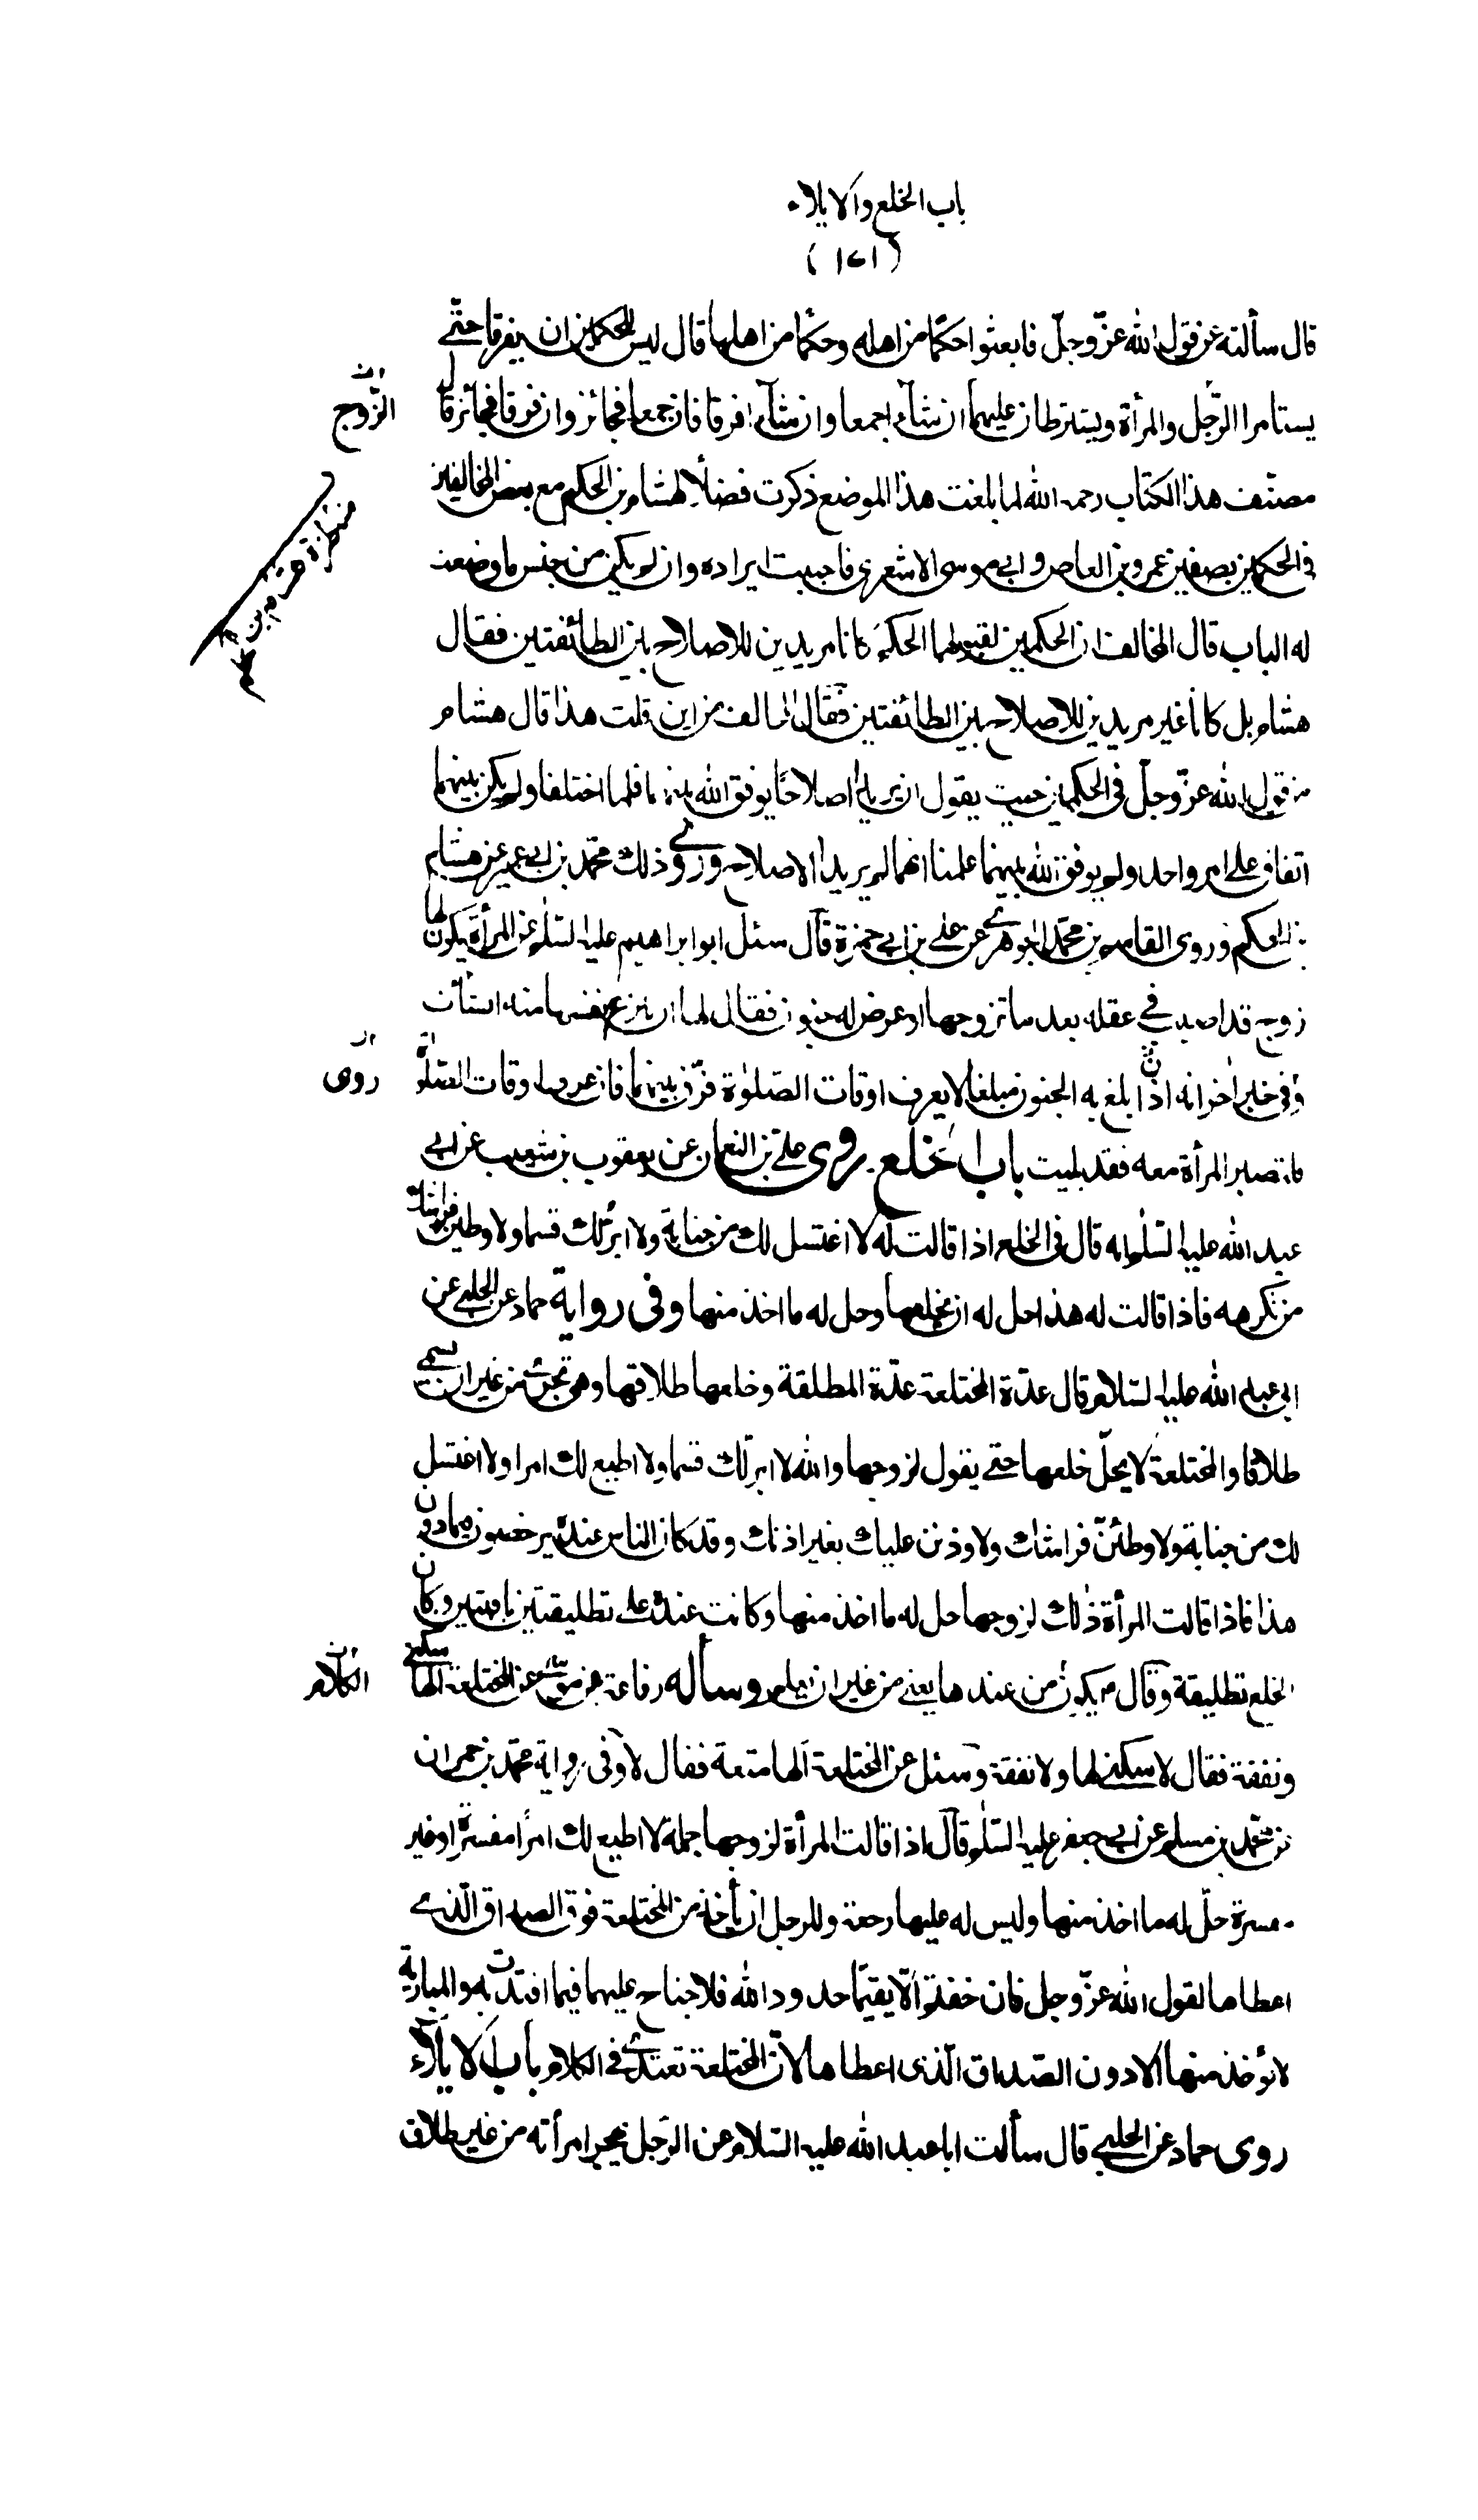 باب الخلع والايلاء
(١٧١)
قال سألته عن قول الله عزّ وجلّ فابعثوا حكمًا من اهله وحكمًا من اهلها قال ليس للحكمين ان يفرقا حتّى
يستامرا الرّجل والمرأة ويشترطان عليهما ان شاء اجمعا وان شاء افرقا فان جمعا فجائز وان فرقا فجائز قال
الزّوج
مصنّف هذا الكتاب رحمه الله لما بلغت هذا الموضع ذكرت فضلاً لهشام بن الحكم مع بعض المخالفين
في الحكمين بصفين عمرو بن العاص وابي موسى الاشعري فاحببت ايراده وان لم يكن من جنس ما وضعت
له الباب قال المخالف ان الحكمين لقبولهما الحكم كانا مريدين للاصلاح بين الطائفتين فقال
هشام بل كانا غير مريدين للاصلاح بين الطائفتين فقال المخالف من اين قلت هذا قال هشام
من قول الله عزّ وجلّ في الحكمين حيث يقول ان يريدا اصلاحًا يوفق الله بينهما فلما اختلفا ولم يكن بينهما
اتفاق على امر واحد ولم يوفق الله بينهما علمنا انهما لم يريدا الاصلاح وروى ذلك محمّد بن ابي عمير عن هشام
بن الحكم وروى القاسم بن محمّد الجوهري عن علي بن ابي حمزة قال سئل ابو ابراهيم عليه السّلم عن المرأة يكون لها
زوج قد اصيب في عقله بعد ما تزوجها او عرض له جنون فقال لها ان تنزع نفسها منه ان شائت
وفي خبر اخر انه اذا بلغ به الجنون مبلغا لا يعرف اوقات الصّلوة فرّق بينهما فان عرف اوقات الصّلوة
روى
فلتصبر المرأة معه فقد بليت باب الخلع روى علي بن النعمان عن يعقوب بن شعيب عن ابي
عبد الله عليه السّلم انه قال في الخلع اذا قالت له لا اغتسل لك من جنابة ولا ابرّ لك قسما ولاوطين فراشك
من تكرهه فاذا قالت له هذا حل له ان يخلعها وحل له ما اخذ منها وفي رواية حماد عن الحلبي عن
ابي عبد الله عليه السّلام قال عدّة المختلعة عدّة المطلقة وخلعها طلاقها وهي تجزئ من غير ان يسمى
طلاقا والمختلعة لا يحلّ خلعها حتى يقول لزوجها والله لا ابرّ لك قسما ولا اطيع لك امرا ولا اغتسل
لك من جنابة ولاوطئنّ فراشك ولاوذنن عليك بغير اذنك وقد كان الناس عنده يرخصون فيما دون
هذا فاذا قالت المرأة ذلك لزوجها حل له ما اخذ منها وكانت عنده على تطليقتين باقيتين وكان
الخلع تطليقة وقال يكون من عندها يعني من غير ان يعلم وسأله رفاعة بن موسى عن المختلعة الها سكنى
الكلام
ونفقة فقال لا سكنى لها ولا نفقة وسئل عن المختلعة ألها متعة فقال لا وفي رواية محمّد بن حمران
عن محمّد بن مسلم عن ابي جعفر عليه السّلم قال اذا قالت المرأة لزوجها جملة لا اطيع لك امرًا مفسرة او غير
مفسرة حلّ له ما اخذ منها وليس له عليها رجعة وللرجل ان يأخذ من المختلعة فوق الصداق الّذي
اعطاها لقول الله عزّ وجل فان خفتم الّا يقيما حدود الله فلا جناح عليهما فيما افتدت به والمبارية
لا يؤخذ منها الا دون الصّداق الّذي اعطاها لانّ المختلعة تعتدي في الكلام باب الايلاء
روى حماد عن الحلبي قال سألت ابا عبد الله عليه السّلام عن الرّجل يهجر امرأته من غير طلاق